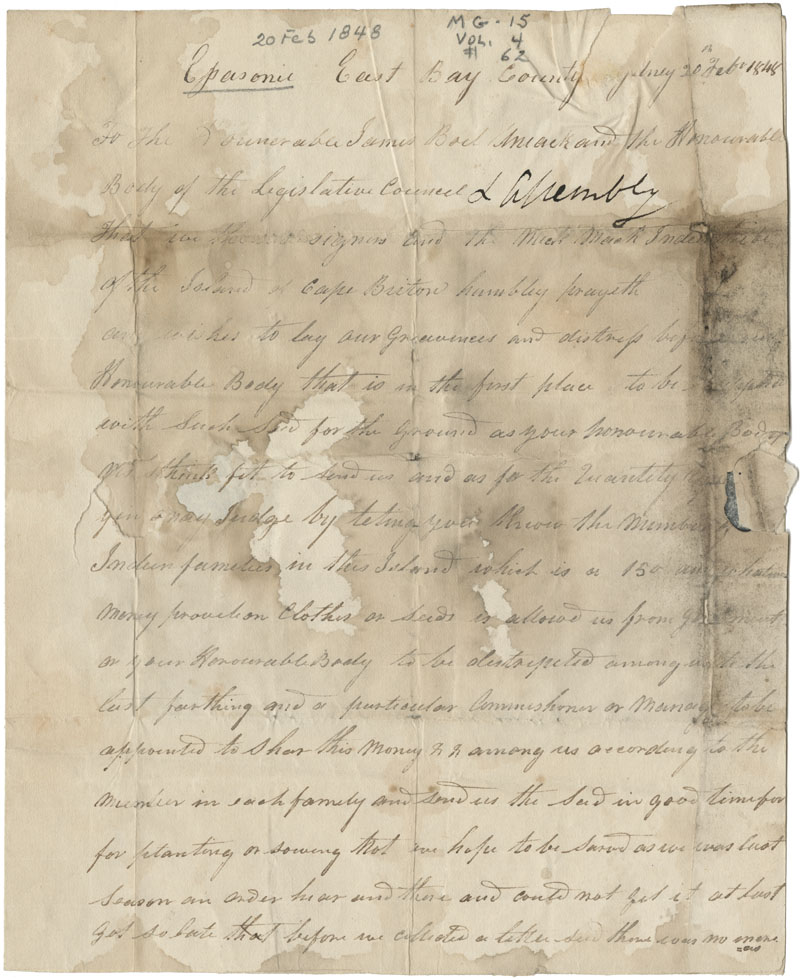 20 Feb 1848
MG-15
VOL. 4
# 62
Epasonic East Bay County Sydney 20th Feby 1848
To the Honnerable James Boel Uniack and the Honourable
Body of the Legislative Council & Assembly
That we the signers and the Mick Mack Indien tribe
of the Island of Cape Briton humbly prayeth
and wishes to lay our Greavences and distress
Honourable Body that is in the first place to be
with such Seed for the Ground as your honourable Body
think fit to send us and as for the Quantety
you may Judge by leting you know the number
Indien families in this Island which is a 150 and whatever
money provision Clothes or Seeds is allowed us from Government
or your Honourable Body to be destrepeted among us to the
last farthing and a particular Commishoner or Manager to be
appointed to Shar this Money && among us according to the
number in each family and send us the Seed in good time for
for planting or sowing that we hope to be sarved as we was last
Season an order hear and there and could not get it at last
got so late that before we collected a letter seed there was no more